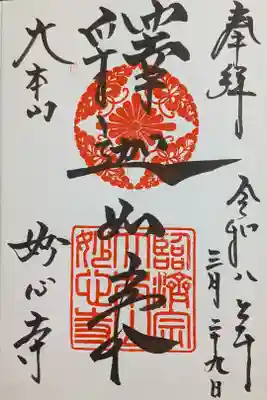 奉拝
令和八年
三月二十九日
釋迦如来
臨濟宗
妙心寺
大本山
妙心寺